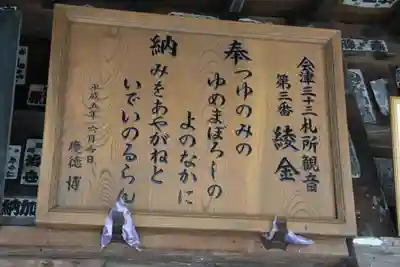 会津三十三札所観音
第三番 綾金
奉 つゆのみの
ゆめまぼろしの
よのなかに
納 みをあやがねと
いでいのるらん
平成五年六月吉日
慶徳 博
納
加